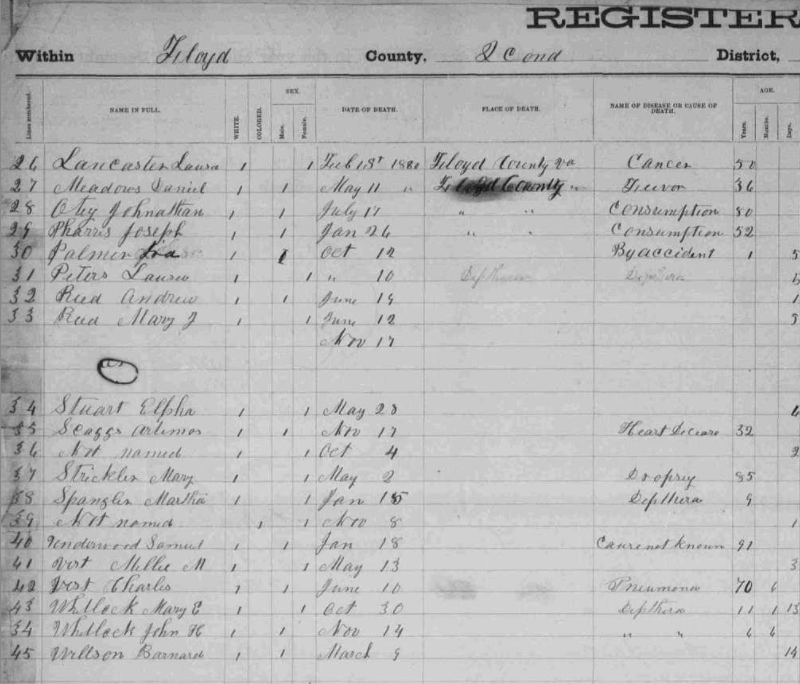 REGISTER
Within Floyd County. 2cond District,
Lines numbered. NAME IN FULL. WHITE. COLORED. SEX. Male. Female. DATE OF DEATH. PLACE OF DEATH. NAME OF DISEASE OR CAUSE OF DEATH. AGE. Years. Months. Days.
26 Lancaster Laura 1 1 Feb 18t 1880 Floyd County va Cancer 50
27 Meadows Daniel 1 1 May 11 " Floyd County " Feevor 36
28 Otey Johnathan 1 1 July 17 " " Consumption 80
29 Pharris Joseph 1 1 Jan 26 " " Consumption 52
30 Palmer Ira 1 1 Oct 12 By accident 1 5
31 Peters Laura 1 1 " 10 Depthera
32 Reed Andrew 1 1 June 19 1
33 Reed Mary J 1 1 June 12 3
Nov 17
34 Stuart Elpha 1 1 May 28
35 Scaggs Artimos 1 1 Nov 17 Heart Deceare 32
36 Not named 1 1 Oct 4 2
37 Stricklin Mary 1 1 May 2 Dropsey 85
38 Spangler Martha 1 1 Jan 15 Depthera 9
39 Not named 1 1 Nov 8 1
40 Underwood Samuel 1 1 Jan 18 Cause not known 91
41 Vest Millie M 1 1 May 13 3
42 Vest Charles 1 1 June 10 Pneumona 70 6
43 Whitlock Mary E 1 1 Oct 30 Depthera 11 1 13
34 Whitlock John H 1 1 Nov 14 " " 6 6
45 Willson Barnard 1 1 March 9 14